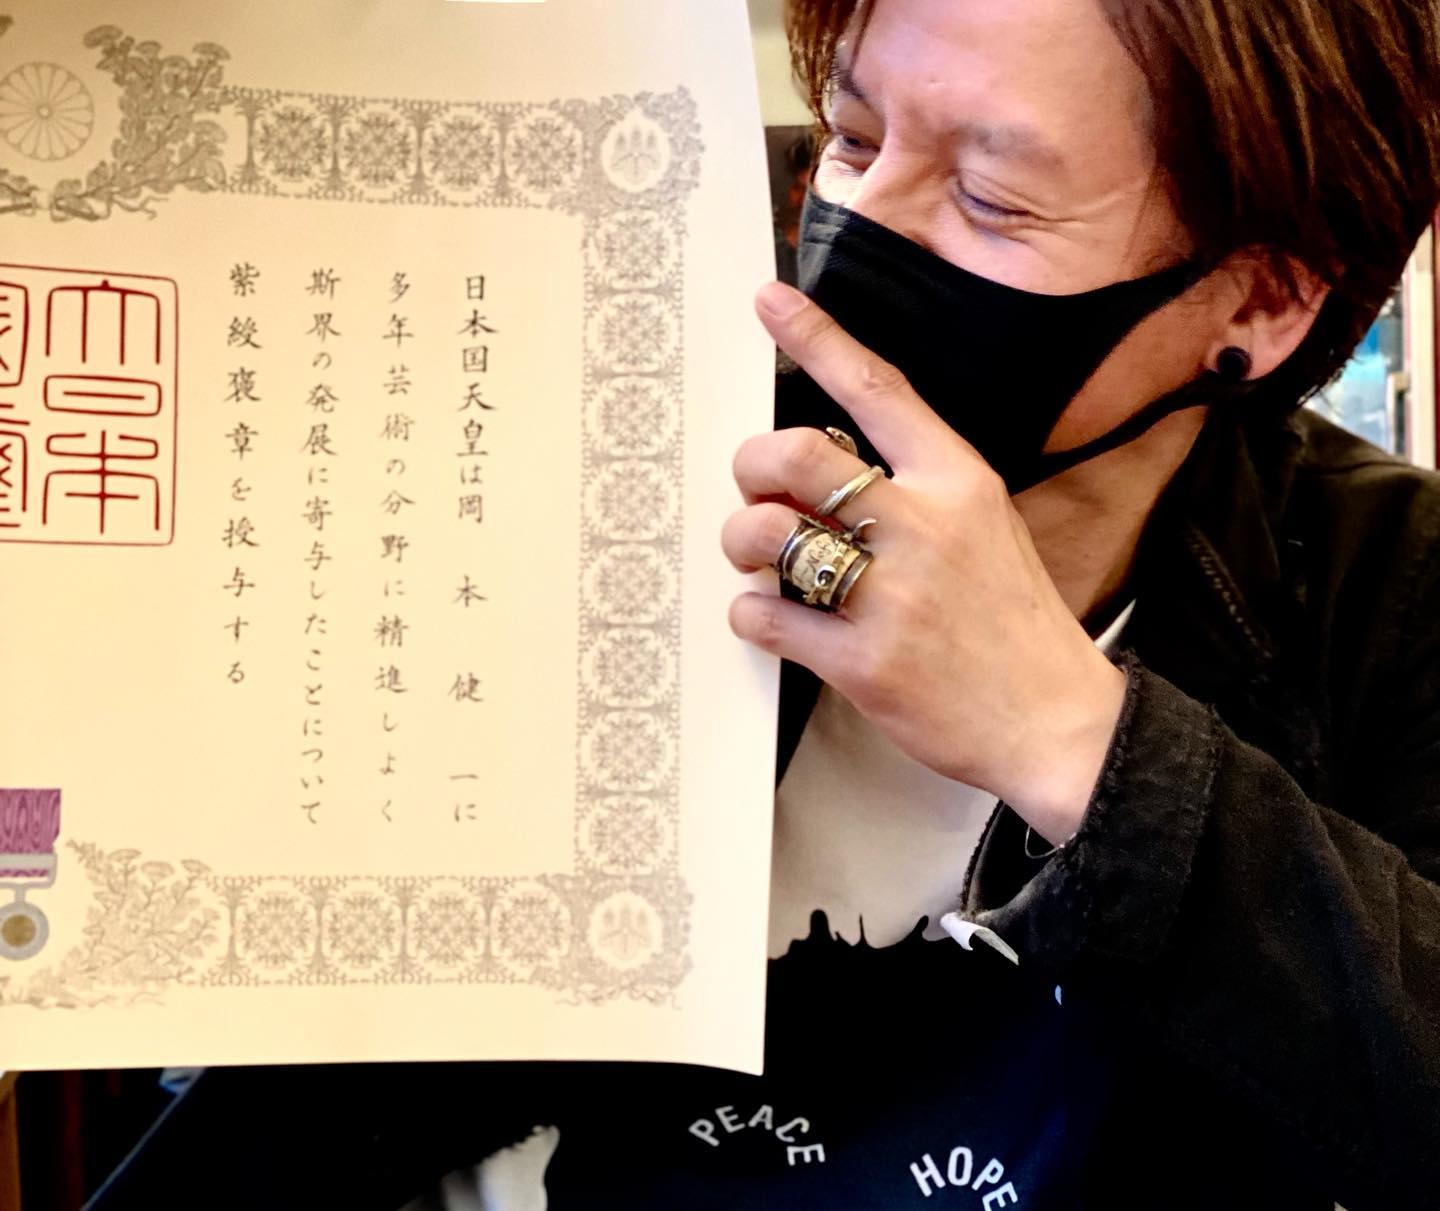 日本国天皇は岡本健一に
多年芸術の分野に精進しよく
斯界の発展に寄与したことについて
紫綬褒章を授与する
大日本
PEACE
HOPE